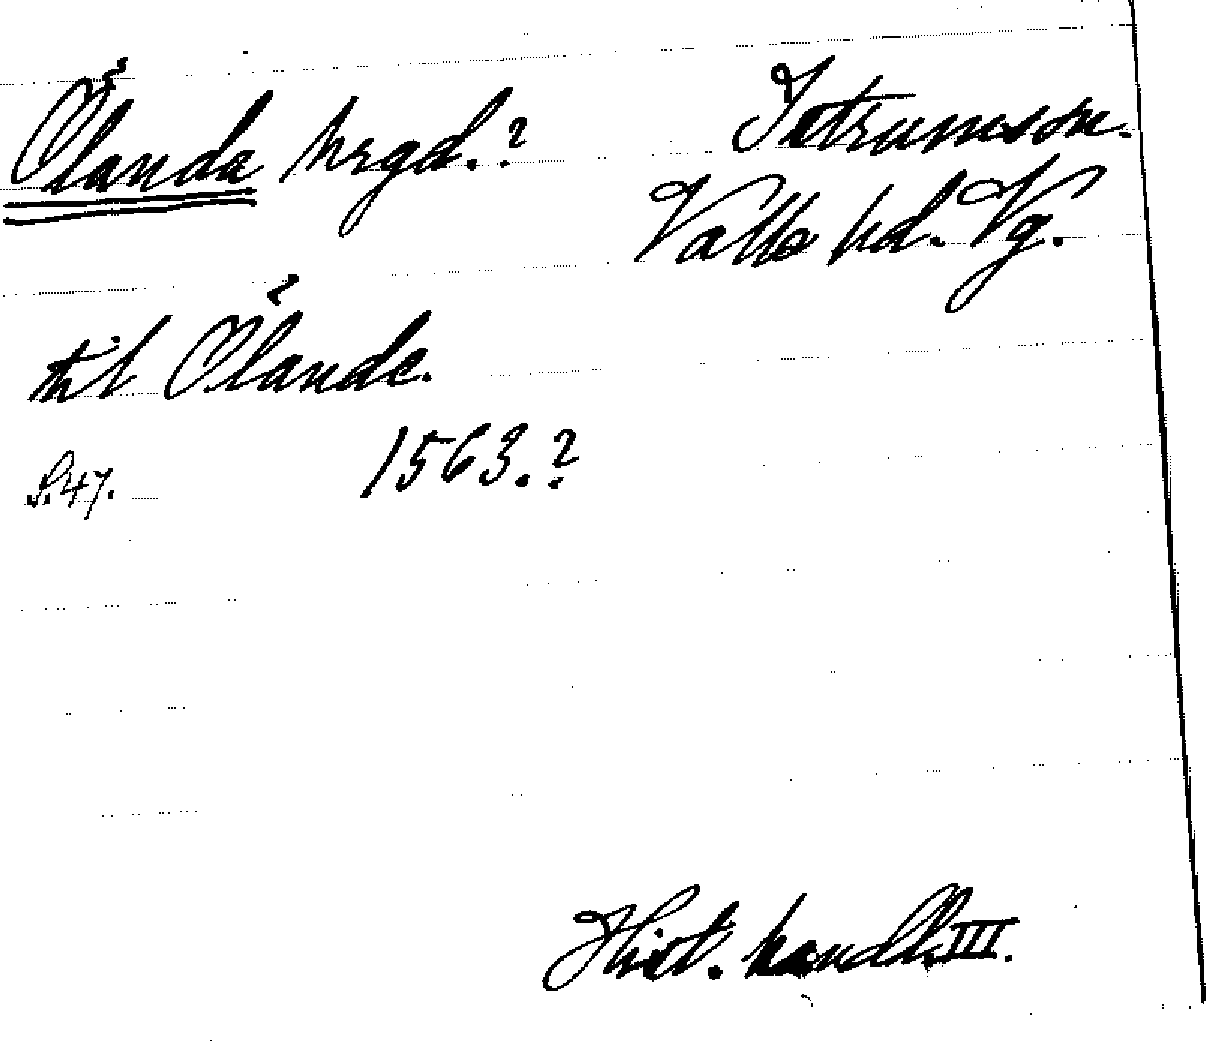 Ölanda hrgd.? Istrums sn.
Valle hd. Vg.
till Ölande.
S. 47. 1563.?
Hist. handl. III.